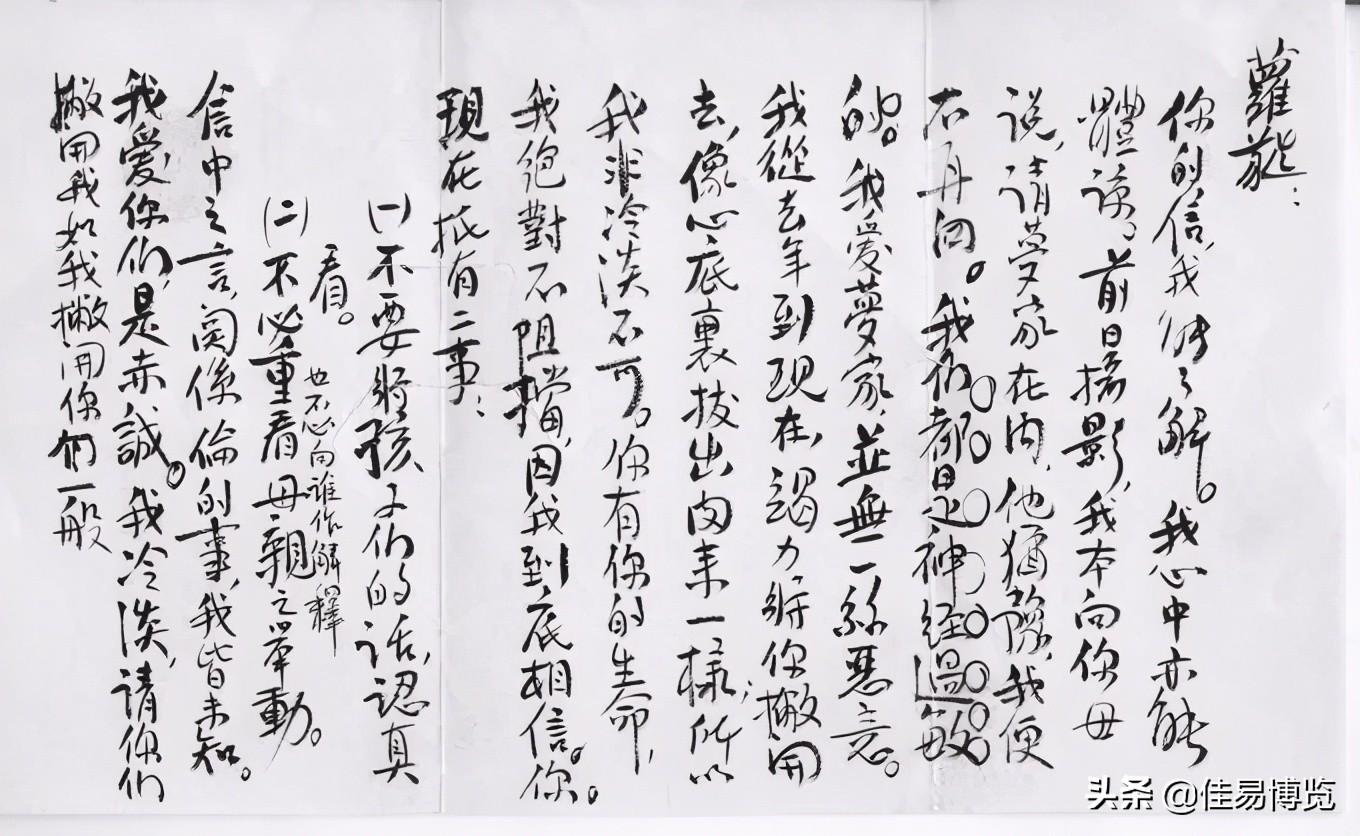 蘿蕤：
你的信，我能了解。我心中亦能
體諒。前日攝影，我本向你母
说，请夢家在内，他猶豫，我便
不再问。我们都是神经過敏
的。我爱夢家，並無一絲惡意。
我從去年到現在，竭力将你撇開
去，像心底裏拔出肉来一樣；所以
我非冷淡不可。你有你的生命，
我絶對不阻擋，因我到底相信你。
現在祇有二事：
(一)不要将孩子们的话，認真
看。
也不必向谁作解釋
(二)不必重看母親之举動。
信中之言，関係倫的事，我皆未知。
我爱你们，是赤誠。我冷淡，请你们
撇開我如我撇開你们一般
头条 @佳易博览